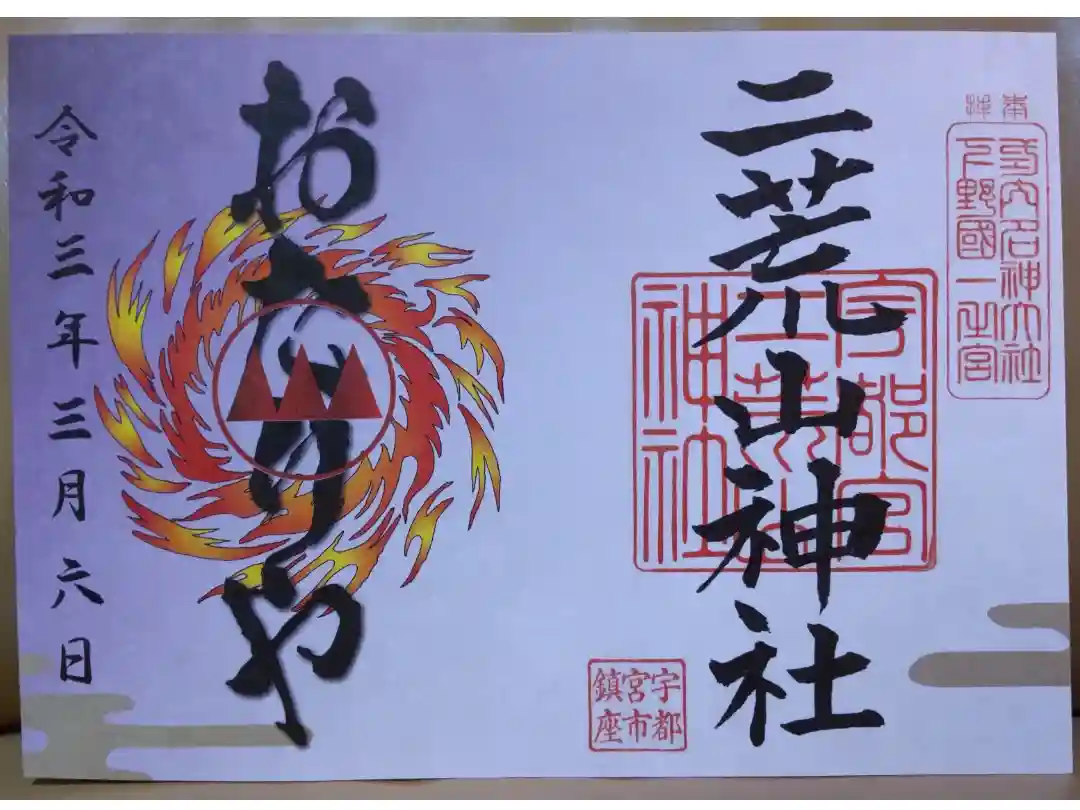 奉拝
式内名神大社
下野國一之宮
二荒山神社
宇都宮
二荒山
神社
宇都
宮市
鎮座
おたりや
令和三年三月六日